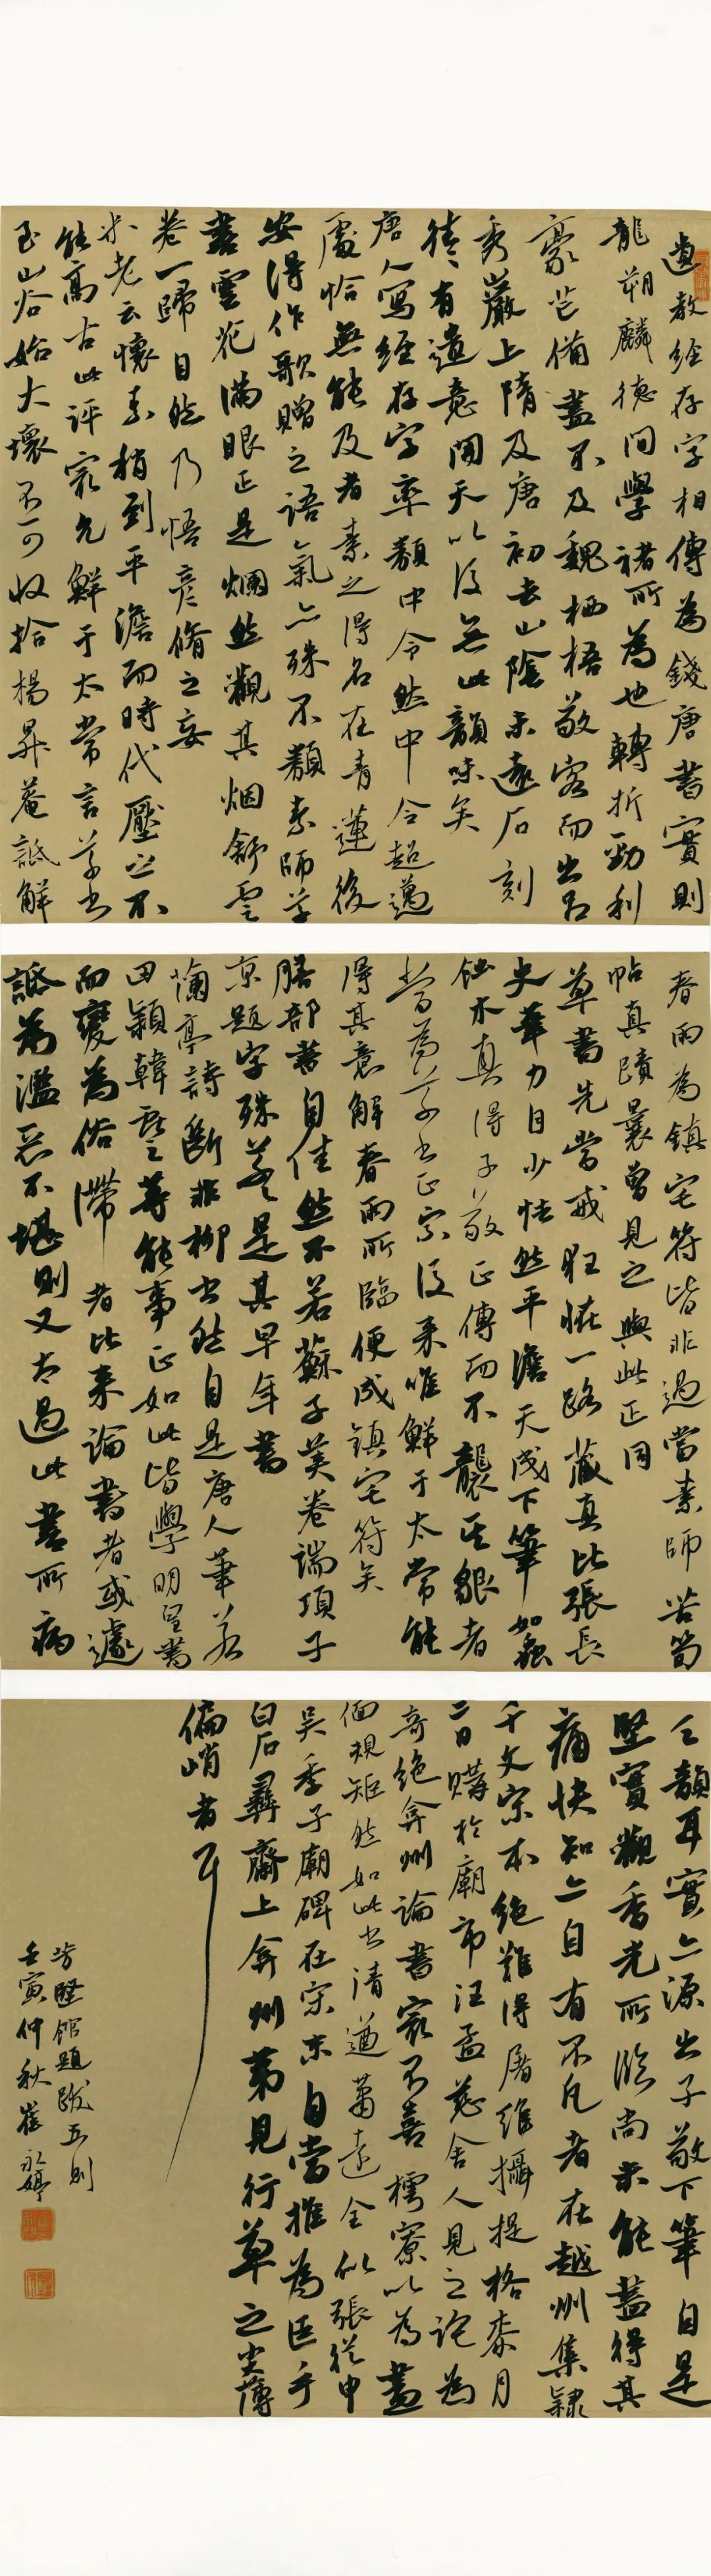 遺教經存字相傳為錢唐書實則
龍朔麟德間學褚所為也轉折勁利
豪芒備盡不及魏栖梧敬客而出呂
秀巖上隋及唐初去山陰未遠石刻
往往有遺意開天以後無此韻味矣
唐人寫經存字率類中令然中令超邁
處恰無能及者素之得名在青蓮後
安得作歌贈之語氣亦殊不類素師草
書雲花滿眼正是爛然觀其烟舒雲
卷一歸自然乃悟彥脩之妄
米老云懷素稍到平澹而時代壓之不
能高古此評最允鮮于太常言草書
至山谷始大壞不可收拾楊昇菴詆解
春雨為鎮宅符皆非過當素師苦筍
帖真蹟曩曾見之與此正同
草書先當戒狂怪一路藏真比張長
史筆力自少怯然平澹天成下筆如蟲
蝕木真得子敬正傳而不襲其貌者
當為草書正宗後來唯鮮于太常能
得其意解春雨所臨便成鎮宅符矣
膳部書自佳然不若蘇子美卷端項子
京題字殊差是其早年書
蘭亭詩斷非柳書然自是唐人筆若
田穎韓㙻等能事正如此皆學明皇書
而變為俗滯者比來論書者或遽
詆為濫惡不堪則又太過此書所病
乏韻耳實亦源出子敬下筆自是
堅實觀香光所臨尚未能盡得其
痛快知亦自有不凡者在越州集隸
千文宋本絕難得屠維攝提格桼月
二日購於廟市汪孟慈舍人見之詫為
奇絕弇州論書最不喜樗寮以為盡
偭規矩然如此書清遒蕭遠全似張從中
吳季子廟碑在宋末自當推為巨手
白石彝齋上弇州弟見行草之尖薄
偏峭者耳
芳堅館題跋五則
壬寅仲秋崔永婷